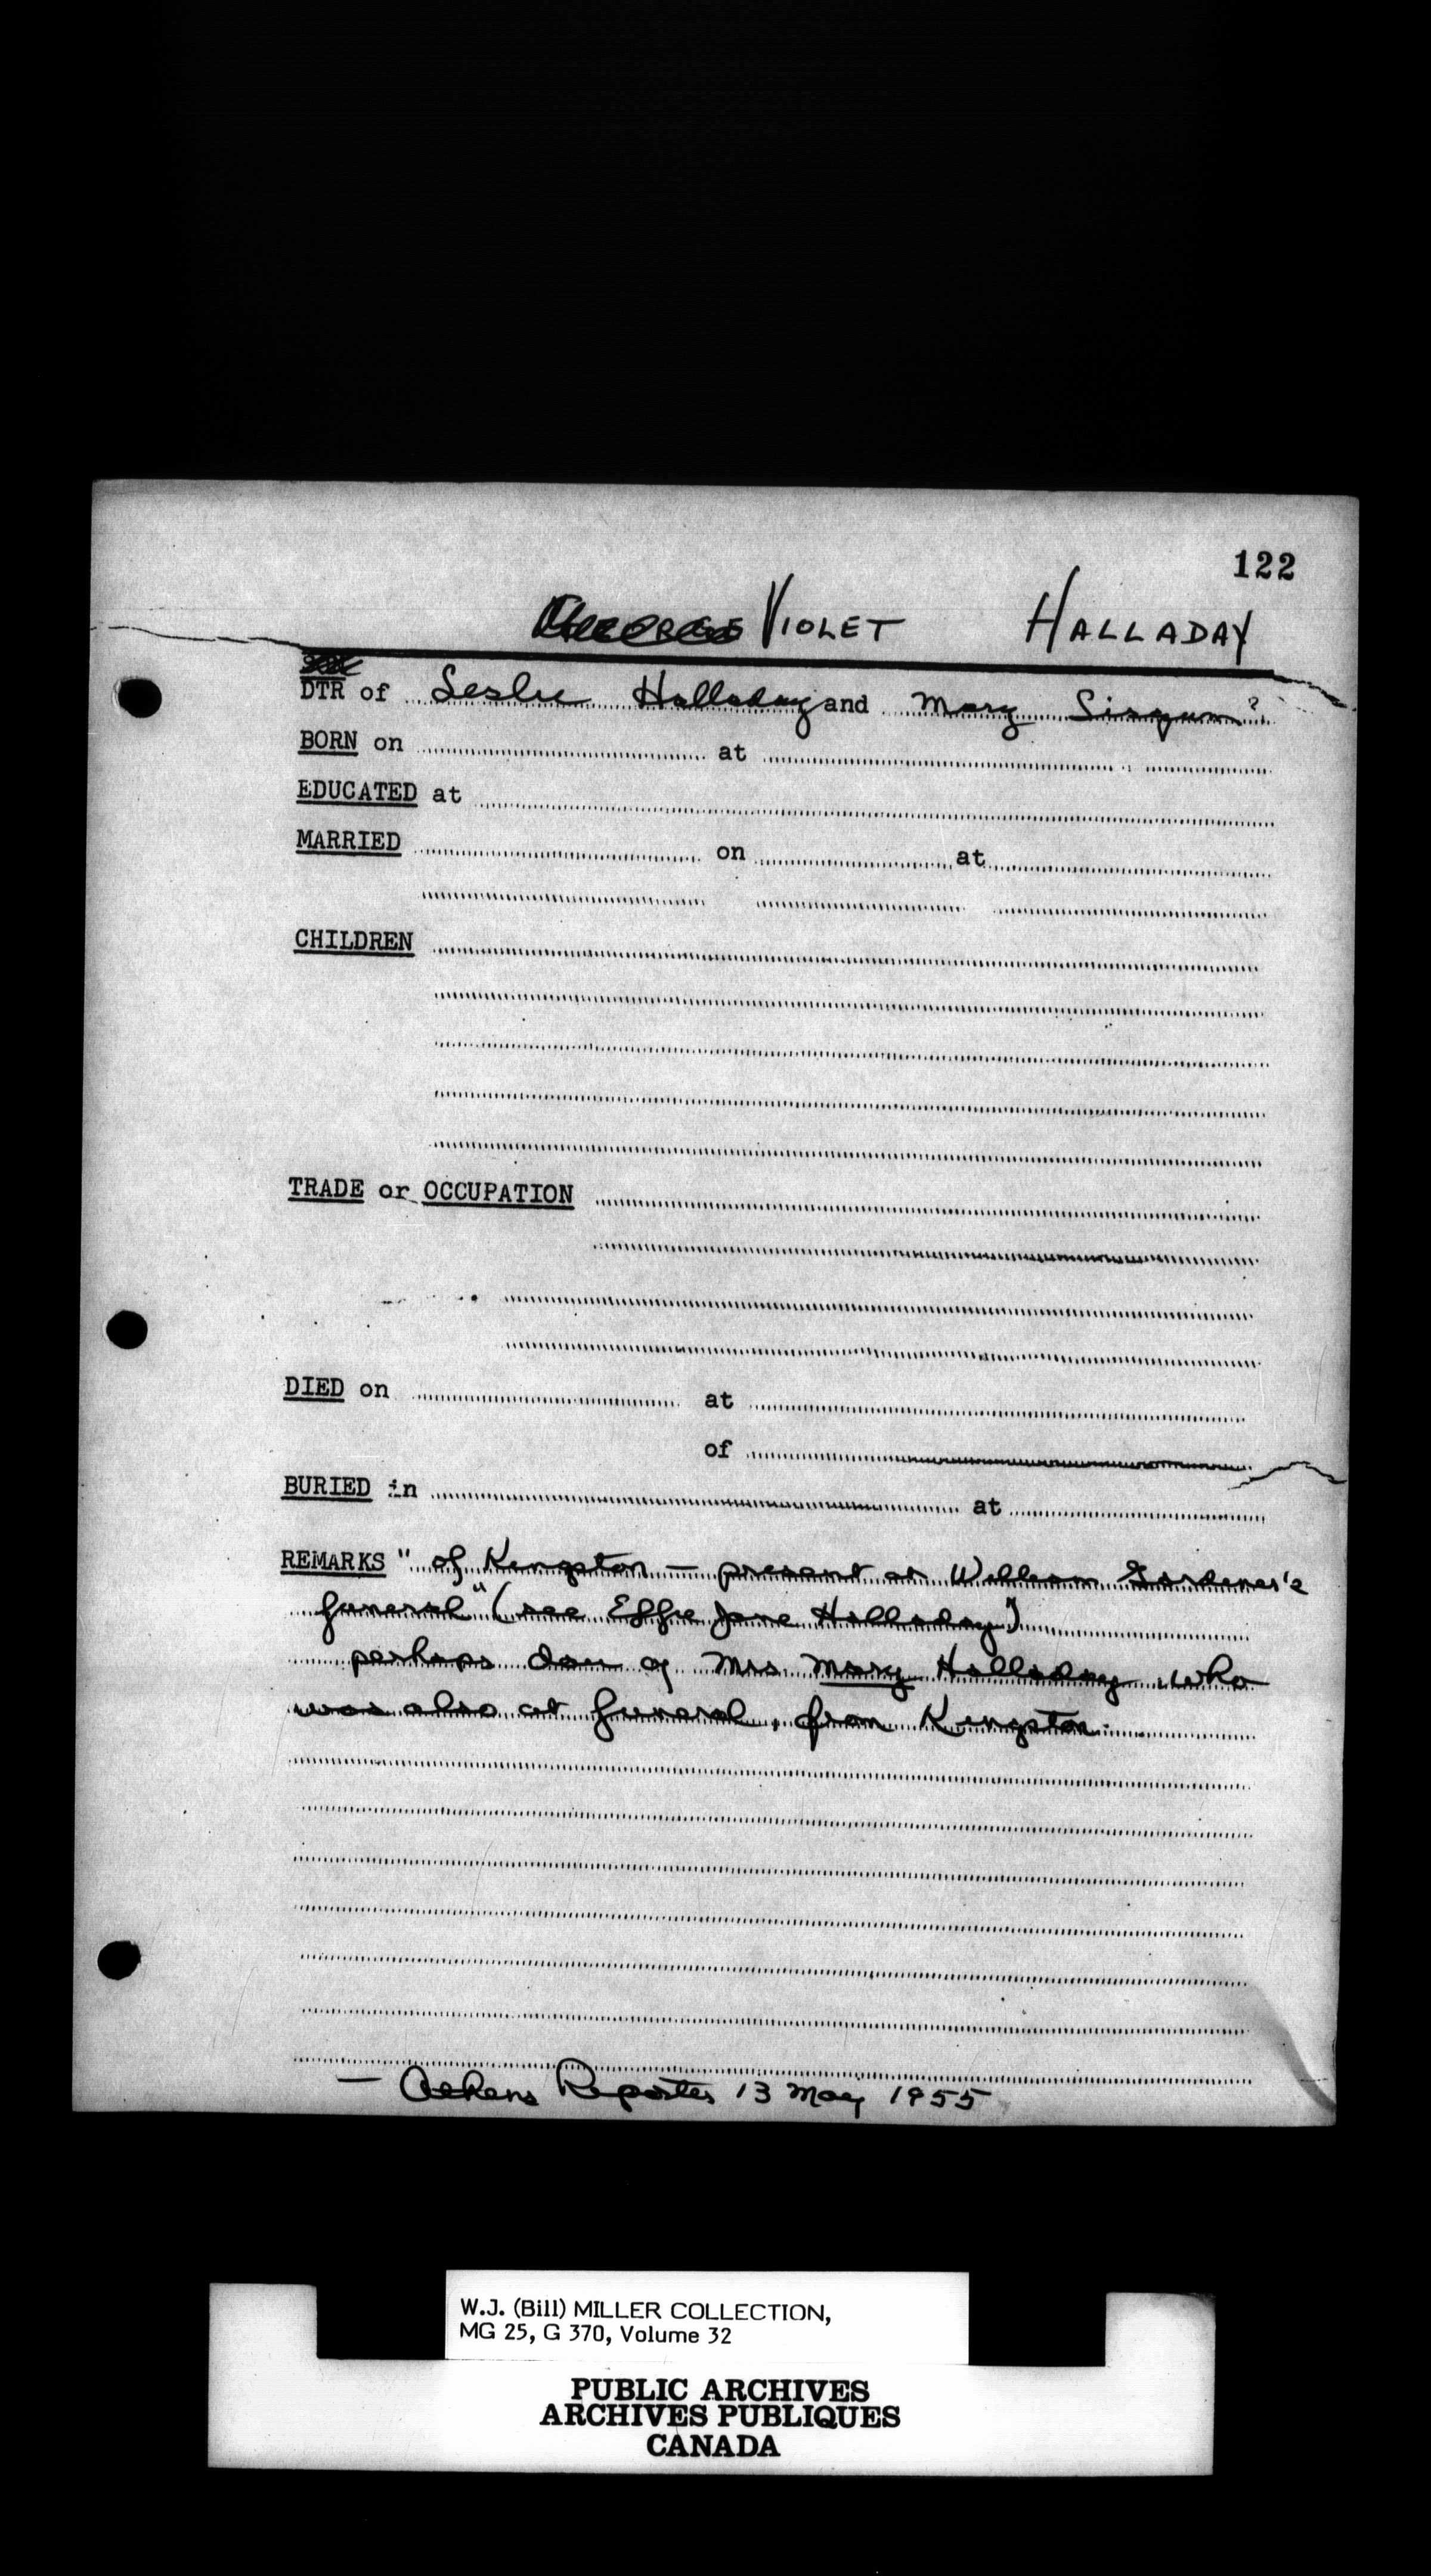 122
VIOLET HALLADAY
DTR of Leslie Halladay and Mary ?
BORN on at
EDUCATED at
MARRIED on at
CHILDREN
TRADE or OCCUPATION
DIED on at
of
BURIED in at
REMARKS " of Kingston — present at William Gardener's
funeral" (see Effie Jane Halladay)
perhaps dau of Mrs Mary Halladay who
was also at funeral, from Kingston.
— Athens Reporter 13 May 1955
W.J. (Bill) MILLER COLLECTION,
MG 25, G 370, Volume 32
PUBLIC ARCHIVES
ARCHIVES PUBLIQUES
CANADA